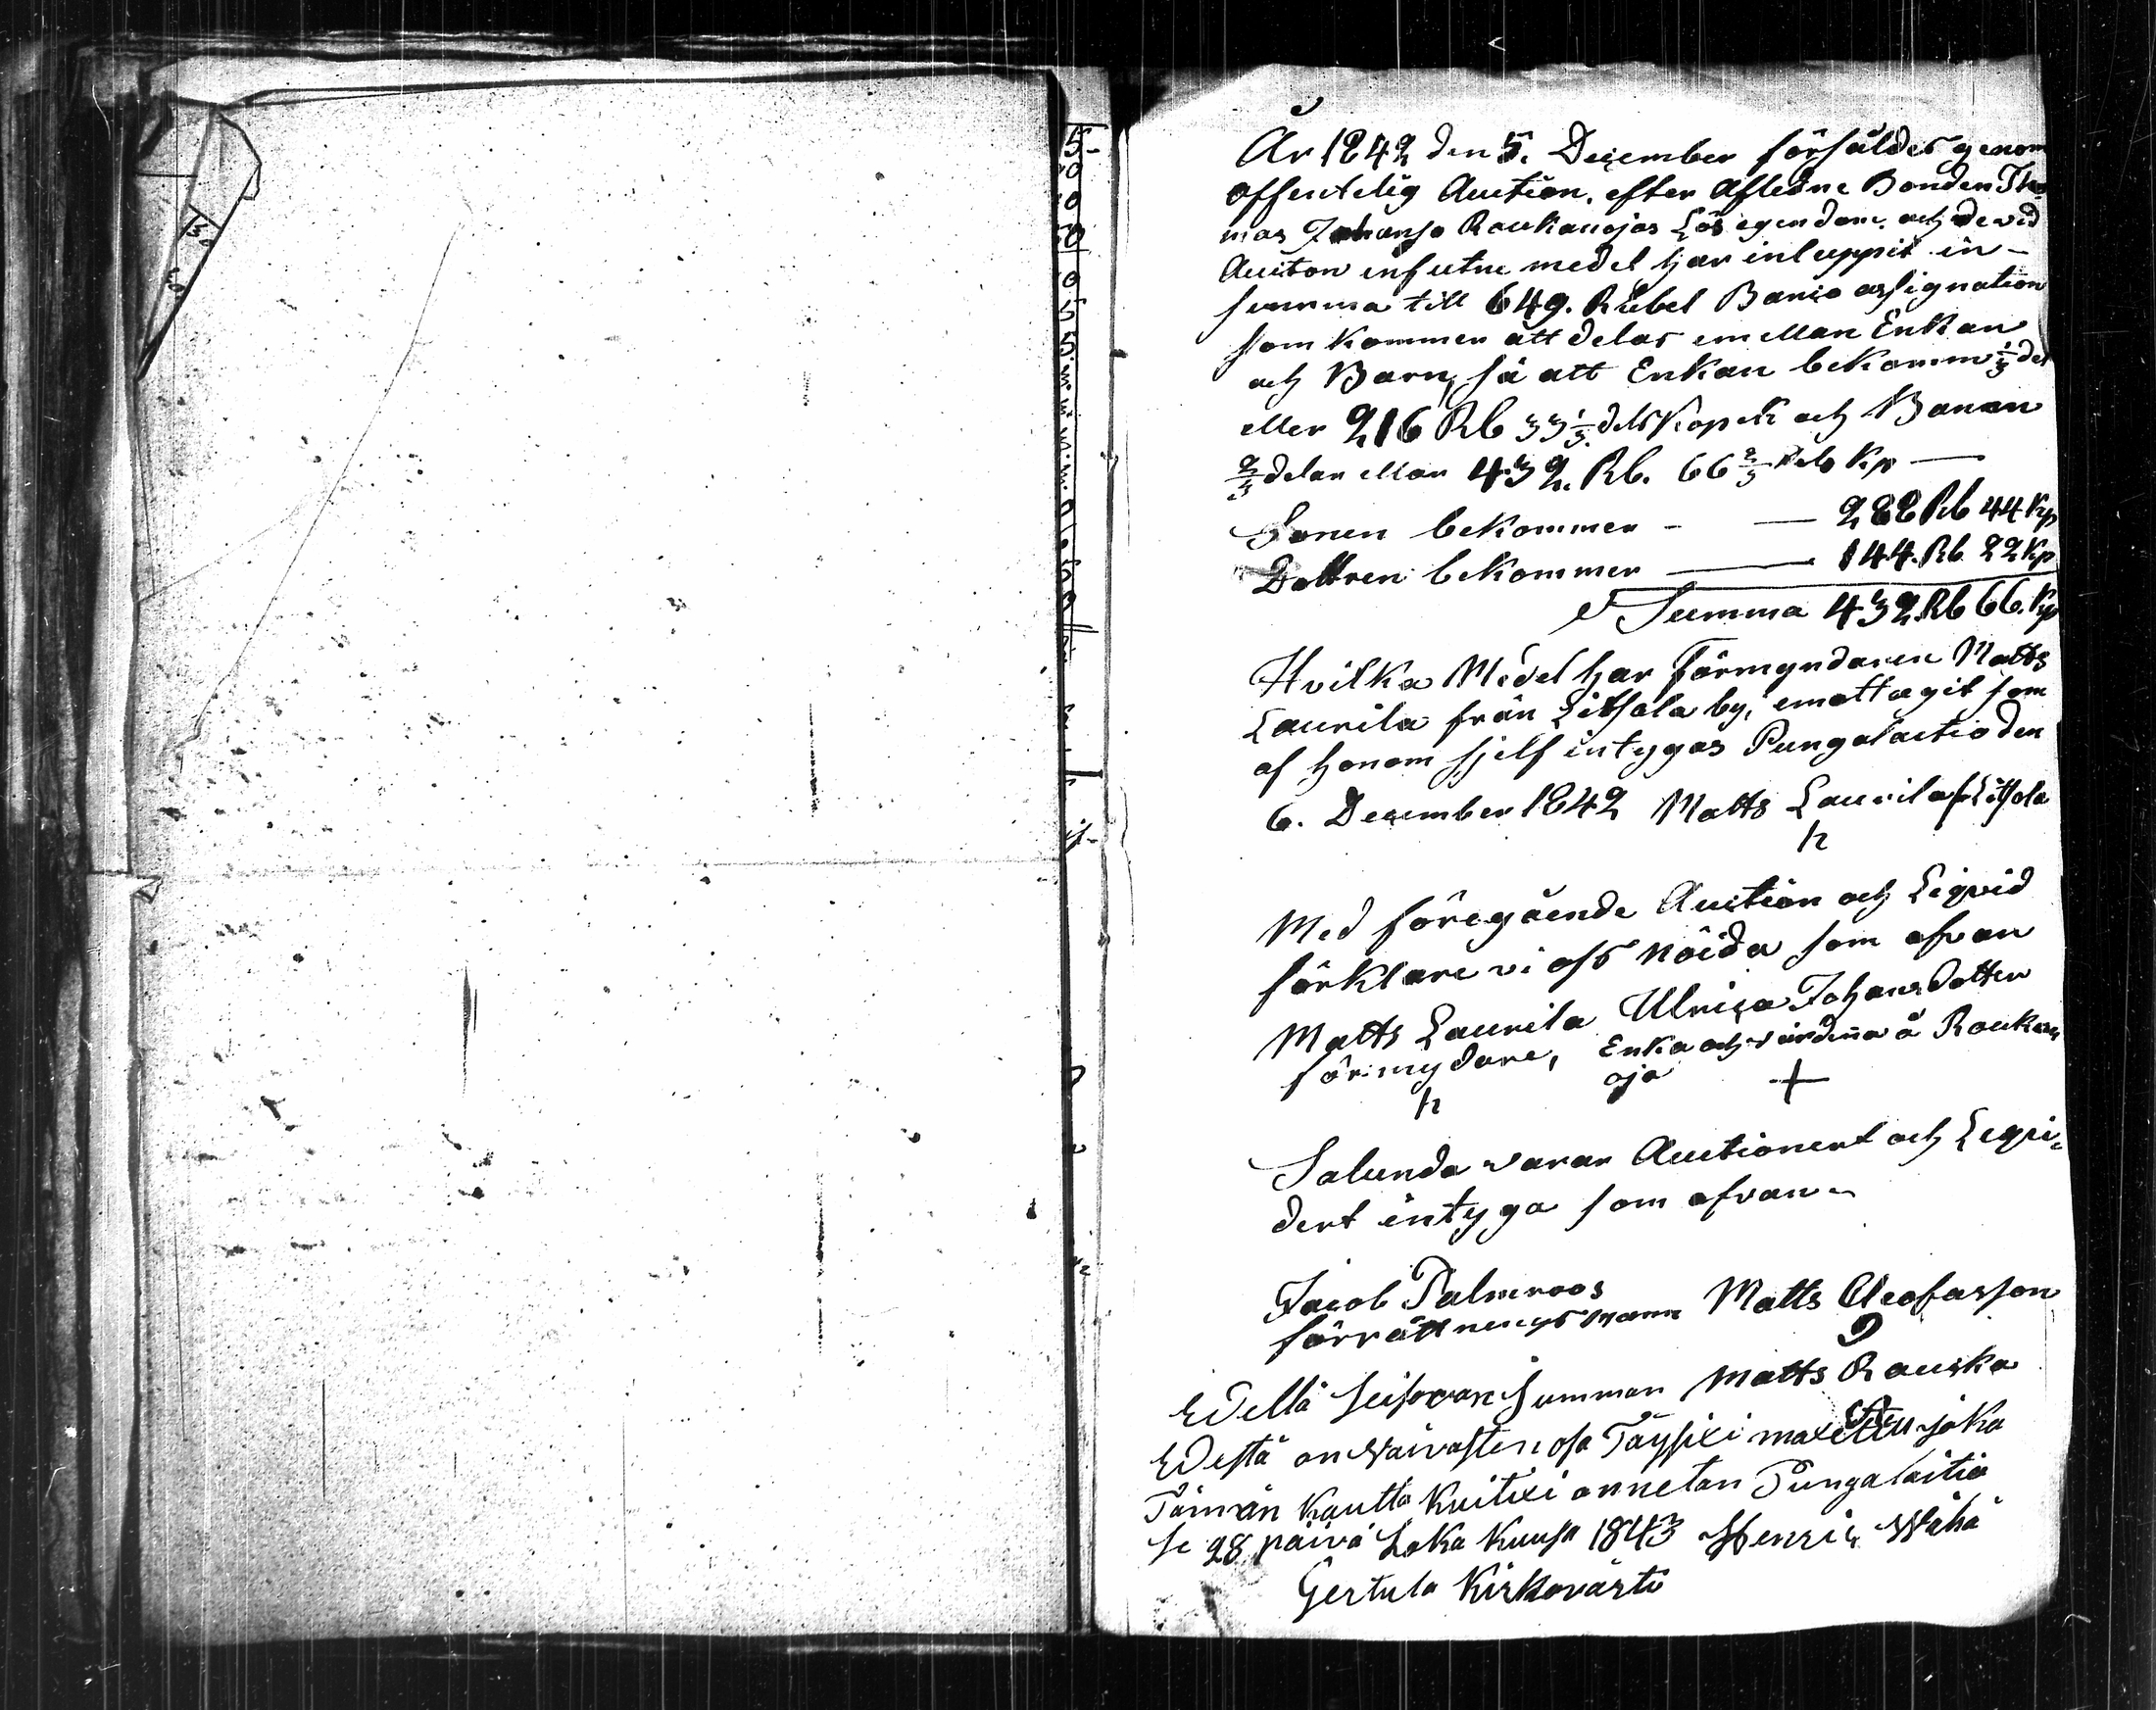 År 1842 den 5. December försåldes genom
offentelig Auction, efter Afledne Bonden Tho-
mas Johansso Roukanojas Lös egendom. och de vid
Auiton influtne medel har inluppit in-
summa till 649. Rubel Banco assignation
som kommer att delas emellan Enkan
och Barn, så att Enkan bekomm 1/3 del
eller 216 Rb 33 1/3 dels Kopek och Banen
2/3 delar ellar 432. Rb. 66 2/3 dels Kp —
Sonen bekommer - — 288 Rb 44 Kp
Dottren bekommer — 144. Rb 22 Kp
Summa 432. Rb 66. Kp
Hvilka Medel har Förmyndaren Matts
Laurila från Litsola by, emottagit som
af honom sjelf intygas Pungalaitio den
6. December 1842 Matts Laurila f Litsola
h
Med föregående Auction och Liqvid
förklare vi oss nöida som ofvan
Matts Laurila Ulrica Johansdotter
förmydare, Enka och värdina å Roukan
h oja +
Salunda varar Auctionert och Liqvi-
dert intyga som ofvan
Jacob Palmroos Matts Cleofasson
förrättnengs mann
Edellä seisovan Summan Matts Rauska
Edestä on Vaivasten osa Täysixi maxettu joka
Tämän kautta Kuitixi annetan Pungalaitio
se 28 päivä Loka Kuusa 1843 Henric Wähä
Gertula Kirkovärti